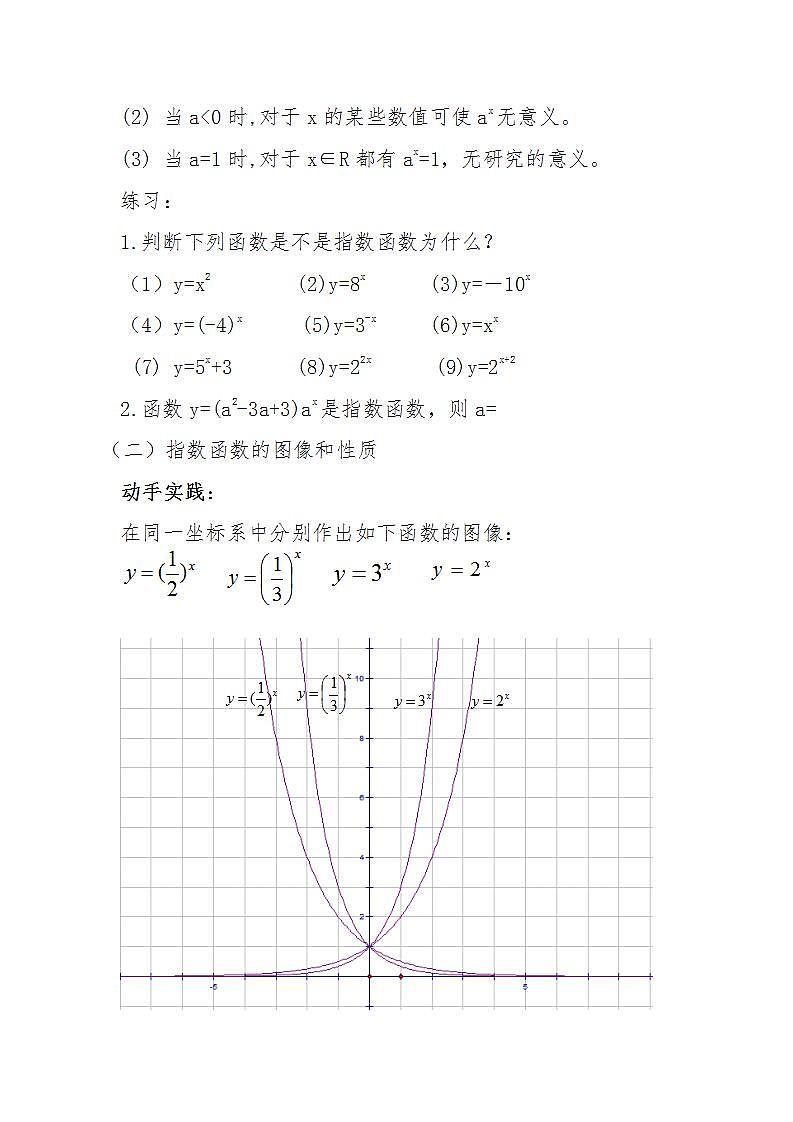 (2) 当a<0时,对于x的某些数值可使aˣ无意义。
(3) 当a=1时,对于x∈R都有aˣ=1，无研究的意义。
练习：
1.判断下列函数是不是指数函数为什么？
（1）y=x² (2)y=8ˣ (3)y=－10ˣ
（4）y=(-4)ˣ (5)y=3⁻ˣ (6)y=xˣ
(7) y=5ˣ+3 (8)y=2²ˣ (9)y=2ˣ⁺²
2.函数y=(a²-3a+3)aˣ是指数函数，则a=
（二）指数函数的图像和性质
动手实践：
在同一坐标系中分别作出如下函数的图像：
y=(1/2)ˣ y=(1/3)ˣ y=3ˣ y=2ˣ
y=(1/2)ˣ y=(1/3)ˣ y=3ˣ y=2ˣ
10
8
6
4
2
-5 5